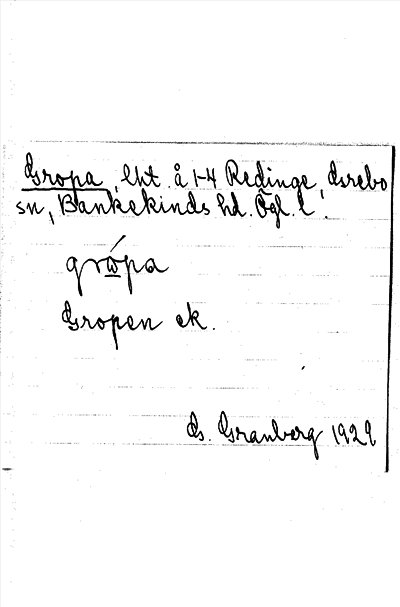 Gropa, lht. å 1-4 Redinge, Grebo
sn, Bankekinds hd. Ögl. l.
grώpa
Gropen ek.
G. Granberg 1929